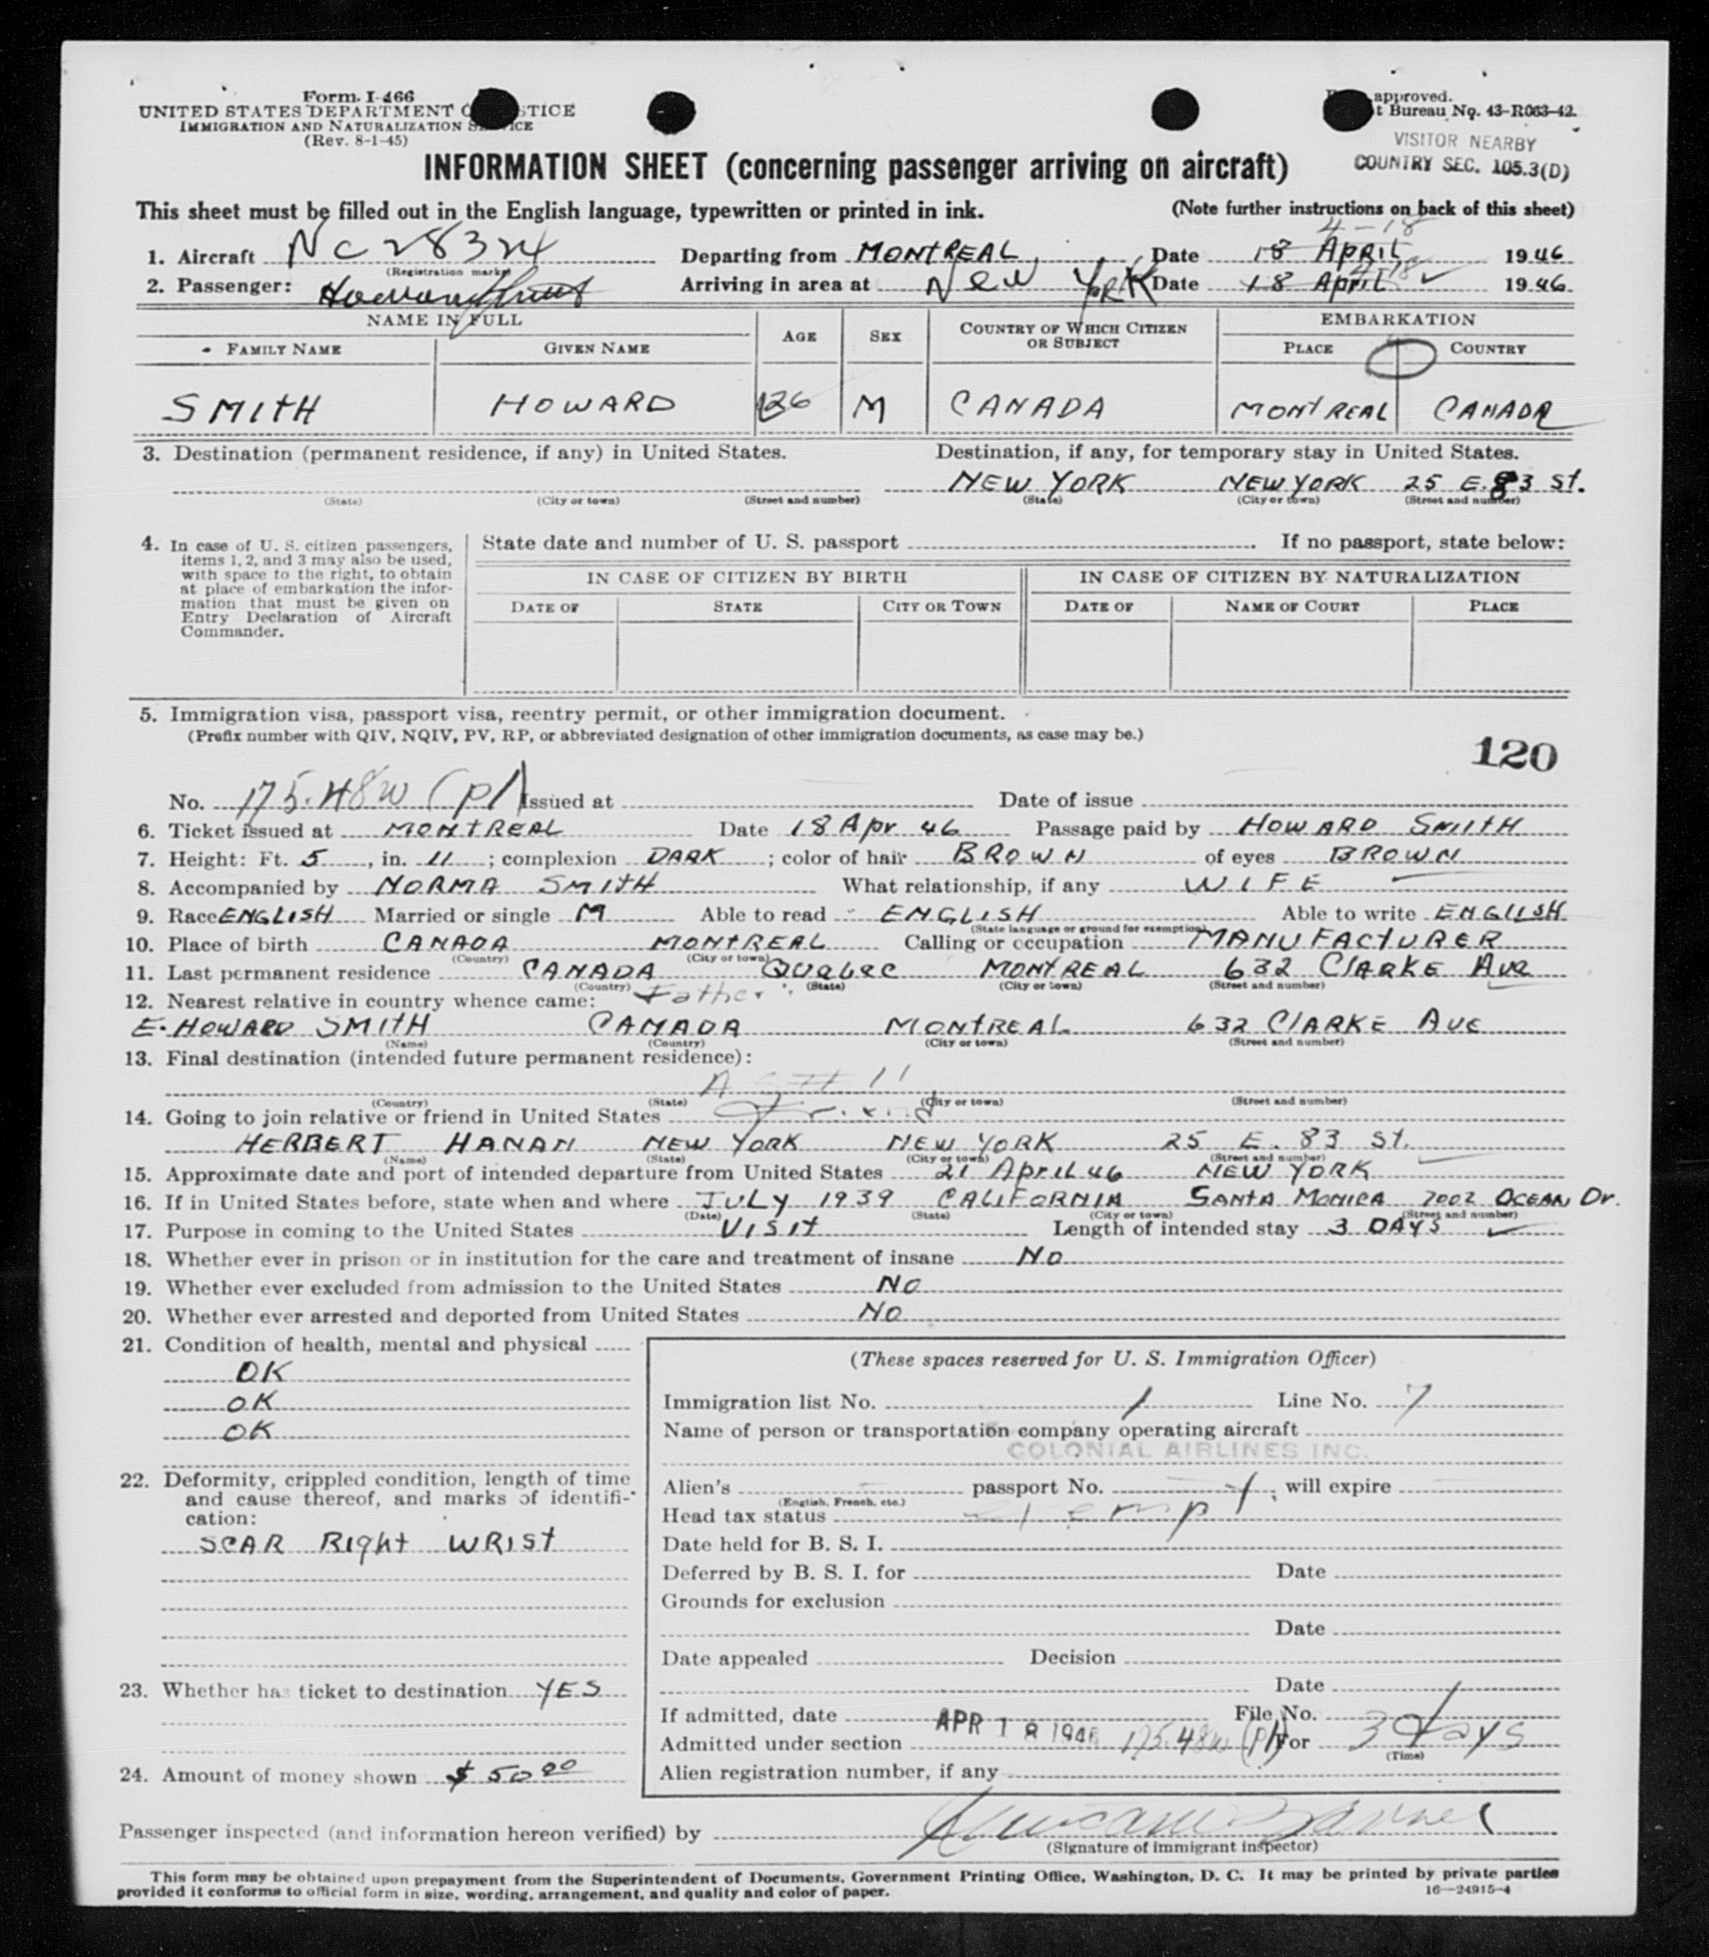 Form I-466
UNITED STATES DEPARTMENT OF JUSTICE
IMMIGRATION AND NATURALIZATION SERVICE
(Rev. 8-1-45)
approved.
t Bureau No. 43-R063-42.
VISITOR NEARBY
COUNTRY SEC. 105.3(D)
INFORMATION SHEET (concerning passenger arriving on aircraft)
This sheet must be filled out in the English language, typewritten or printed in ink. (Note further instructions on back of this sheet)
4-18
1. Aircraft NC28324 Departing from MONTREAL, Date 18 APRIL 1946
(Registration marks)
2. Passenger: Howard Smith Arriving in area at NEW YORK Date 18 APRIL 4-18 1946
NAME IN FULL AGE SEX COUNTRY OF WHICH CITIZEN OR SUBJECT EMBARKATION
FAMILY NAME GIVEN NAME PLACE COUNTRY
SMITH HOWARD 26 M CANADA MONTREAL CANADA
3. Destination (permanent residence, if any) in United States. Destination, if any, for temporary stay in United States.
NEW YORK NEW YORK 25 E. 83 St.
(State) (City or town) (Street and number) (State) (City or town) (Street and number)
4. In case of U. S. citizen passengers, items 1, 2, and 3 may also be used, with space to the right, to obtain at place of embarkation the information that must be given on Entry Declaration of Aircraft Commander.
State date and number of U. S. passport . If no passport, state below:
IN CASE OF CITIZEN BY BIRTH IN CASE OF CITIZEN BY NATURALIZATION
DATE OF STATE CITY OR TOWN DATE OF NAME OF COURT PLACE
5. Immigration visa, passport visa, reentry permit, or other immigration document.
(Prefix number with QIV, NQIV, PV, RP, or abbreviated designation of other immigration documents, as case may be.)
120
No. 175.48w (pl) Issued at Date of issue
6. Ticket issued at MONTREAL Date 18 Apr 46 Passage paid by HOWARD SMITH
7. Height: Ft. 5, in. 11; complexion DARK; color of hair BROWN of eyes BROWN
8. Accompanied by NORMA SMITH What relationship, if any WIFE
9. Race ENGLISH Married or single M Able to read ENGLISH Able to write ENGLISH
(State language or ground for exemption)
10. Place of birth CANADA MONTREAL Calling or occupation MANUFACTURER
(Country) (City or town)
11. Last permanent residence CANADA Quebec MONTREAL 632 CLARKE Ave
(Country) (State) (City or town) (Street and number)
12. Nearest relative in country whence came: Father
E. HOWARD SMITH CANADA MONTREAL 632 CLARKE AVE
(Name) (Country) (City or town) (Street and number)
13. Final destination (intended future permanent residence):
(Country) (State) (City or town) (Street and number)
14. Going to join relative or friend in United States
HERBERT HANAN NEW YORK NEW YORK 25 E. 83 St.
(Name) (State) (City or town) (Street and number)
15. Approximate date and port of intended departure from United States 21 APRIL 46 NEW YORK
16. If in United States before, state when and where JULY 1939 CALIFORNIA SANTA MONICA 2002 OCEAN Dr.
(Date) (State) (City or town) (Street and number)
17. Purpose in coming to the United States VISIT Length of intended stay 3 DAYS
18. Whether ever in prison or in institution for the care and treatment of insane NO
19. Whether ever excluded from admission to the United States NO
20. Whether ever arrested and deported from United States NO
21. Condition of health, mental and physical
OK
OK
OK
22. Deformity, crippled condition, length of time and cause thereof, and marks of identification:
SCAR RIGHT WRIST
23. Whether has ticket to destination YES
24. Amount of money shown $ 50 00
(These spaces reserved for U. S. Immigration Officer)
Immigration list No. 1 Line No. 7
Name of person or transportation company operating aircraft
COLONIAL AIRLINES INC.
Alien's passport No. , will expire
(English, French, etc.)
Head tax status exempt
Date held for B. S. I.
Deferred by B. S. I. for Date
Grounds for exclusion
Date
Date appealed Decision
Date
If admitted, date APR 18 1946 File No.
Admitted under section 175.48w (pl) For 3 days
(Time)
Alien registration number, if any
Passenger inspected (and information hereon verified) by
(Signature of immigrant inspector)
This form may be obtained upon prepayment from the Superintendent of Documents, Government Printing Office, Washington, D. C. It may be printed by private parties
provided it conforms to official form in size, wording, arrangement, and quality and color of paper. 16—24915-4